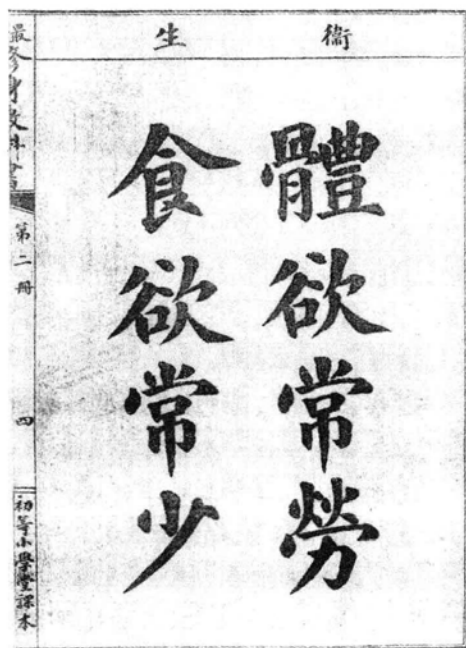 衛生
體欲常勞
食欲常少
最修身教科書
第二冊
四
初等小學堂課本